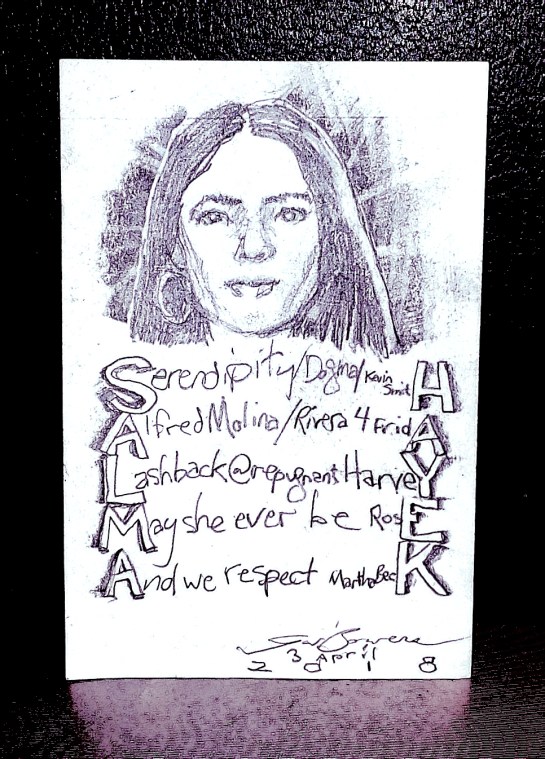 Serendipity/Dogma/Kevin SmitH
Alfred Molina/Rivera 4 FridA
Lashback@repugnant HarveY
May she ever be RosE
And we respect MarthaBecK
3 April
2018